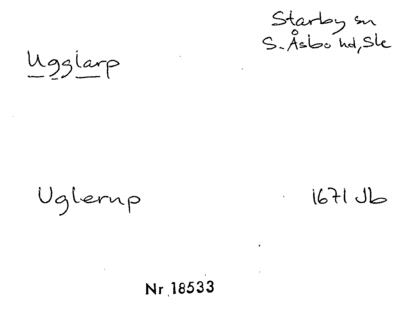 Starby sn
S. Åsbo hd, Sk
Ugglarp
Uglerup 1671 Jb
Nr 18533